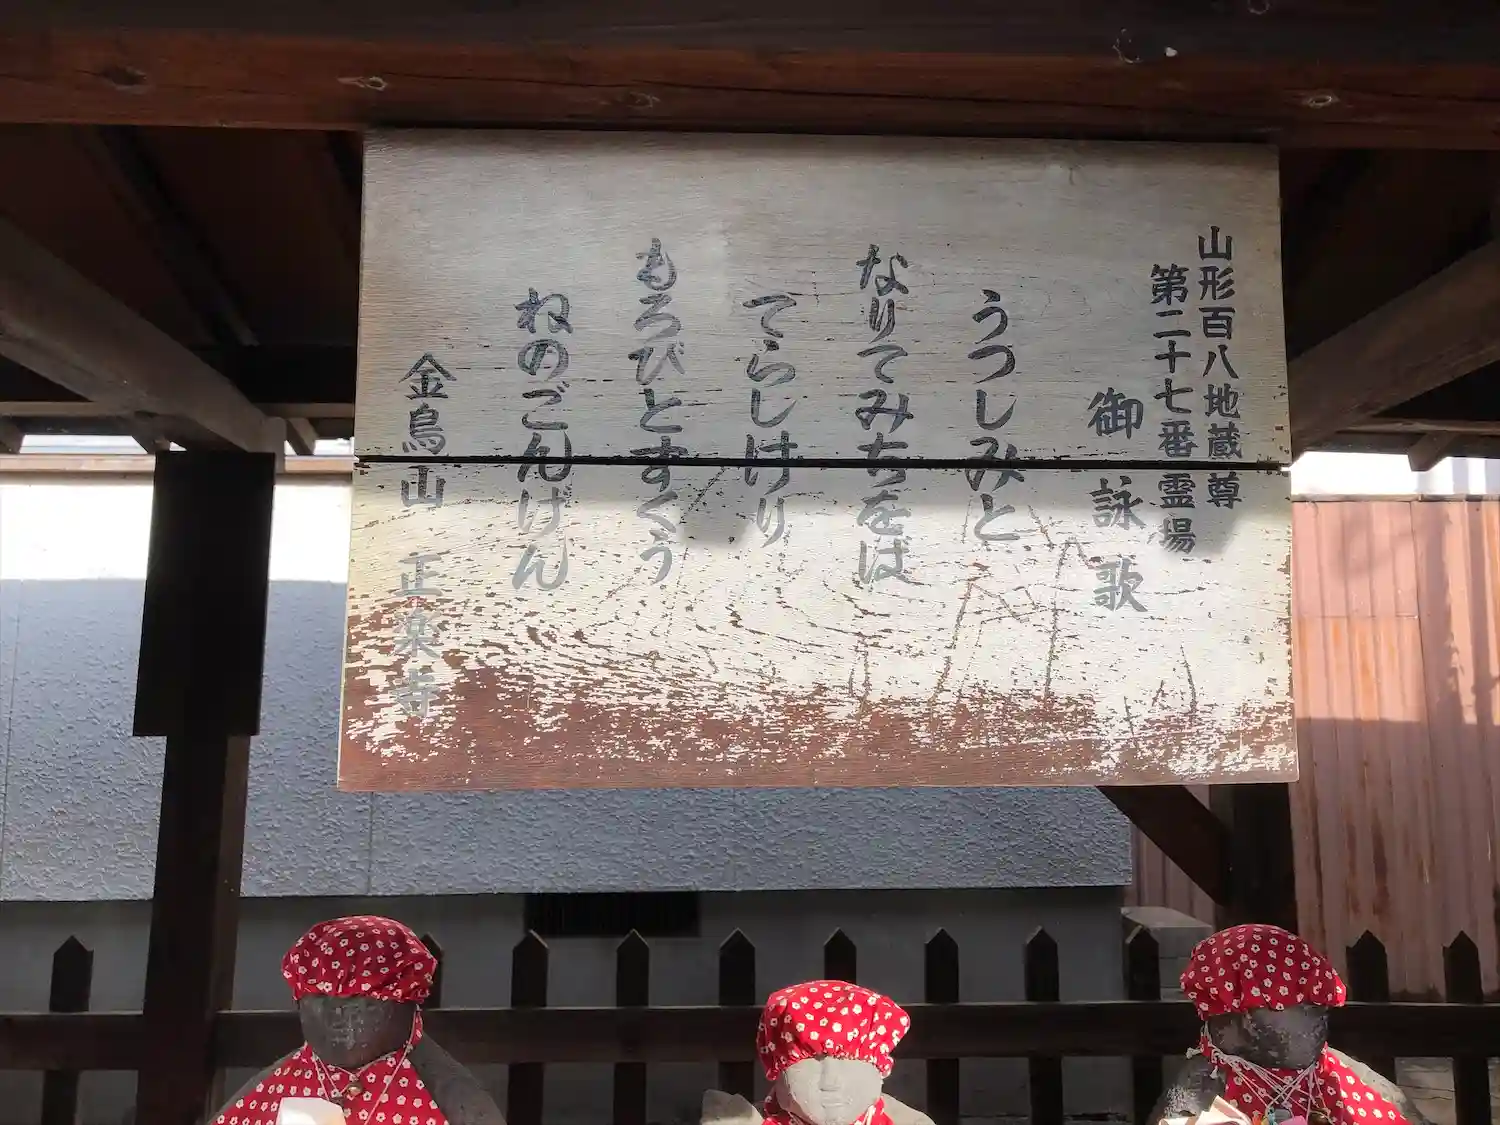 山形百八地蔵尊
第二十七番霊場
御詠歌
うつしみと
なりてみちをば
てらしけり
もろびとすくう
ねのごんげん
金烏山 正楽寺